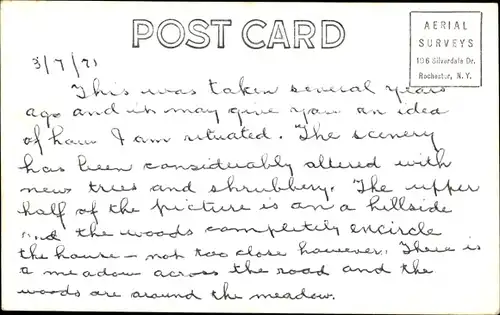 POST CARD
AERIAL
SURVEYS
106 Silverdale Dr.
Rochester, N.Y.
3/7/71
This was taken several years
ago and it may give you an idea
of how I am situated. The scenery
has been considerably altered with
new trees and shrubbery. The upper
half of the picture is on a hillside
and the woods completely encircle
the house - not too close however. There is
a meadow across the road and the
woods are around the meadow.